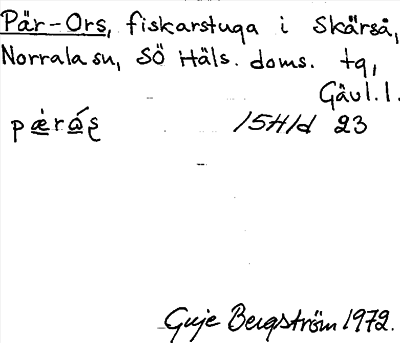 Pär-Ors, fiskarstuga i Skärså,
Norrala sn, SÖ Häls. doms. tg,
Gävl. l.
pǽrás̨ 15H1d 23
Guje Bergström 1972.